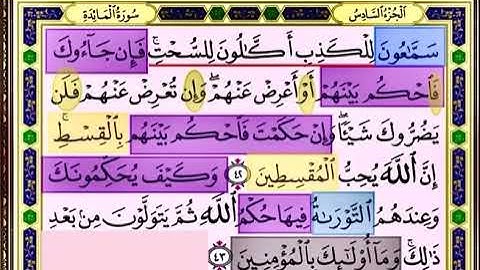 سُورَةُ المَائِدَةِ الجُزْءُ السَّادِسُ
سَمَّٰعُونَ لِلْكَذِبِ أَكَّٰلُونَ لِلسُّحْتِ ۚ فَإِن جَآءُوكَ
فَٱحْكُم بَيْنَهُمْ أَوْ أَعْرِضْ عَنْهُمْ ۖ وَإِن تُعْرِضْ عَنْهُمْ فَلَن
يَضُرُّوكَ شَيْـًٔا ۖ وَإِنْ حَكَمْتَ فَٱحْكُم بَيْنَهُم بِٱلْقِسْطِ ۚ
إِنَّ ٱللَّهَ يُحِبُّ ٱلْمُقْسِطِينَ ٤٢ وَكَيْفَ يُحَكِّمُونَكَ
وَعِندَهُمُ ٱلتَّوْرَىٰةُ فِيهَا حُكْمُ ٱللَّهِ ثُمَّ يَتَوَلَّوْنَ مِنۢ بَعْدِ
ذَٰلِكَ ۚ وَمَآ أُو۟لَٰٓئِكَ بِٱلْمُؤْمِنِينَ ٤٣